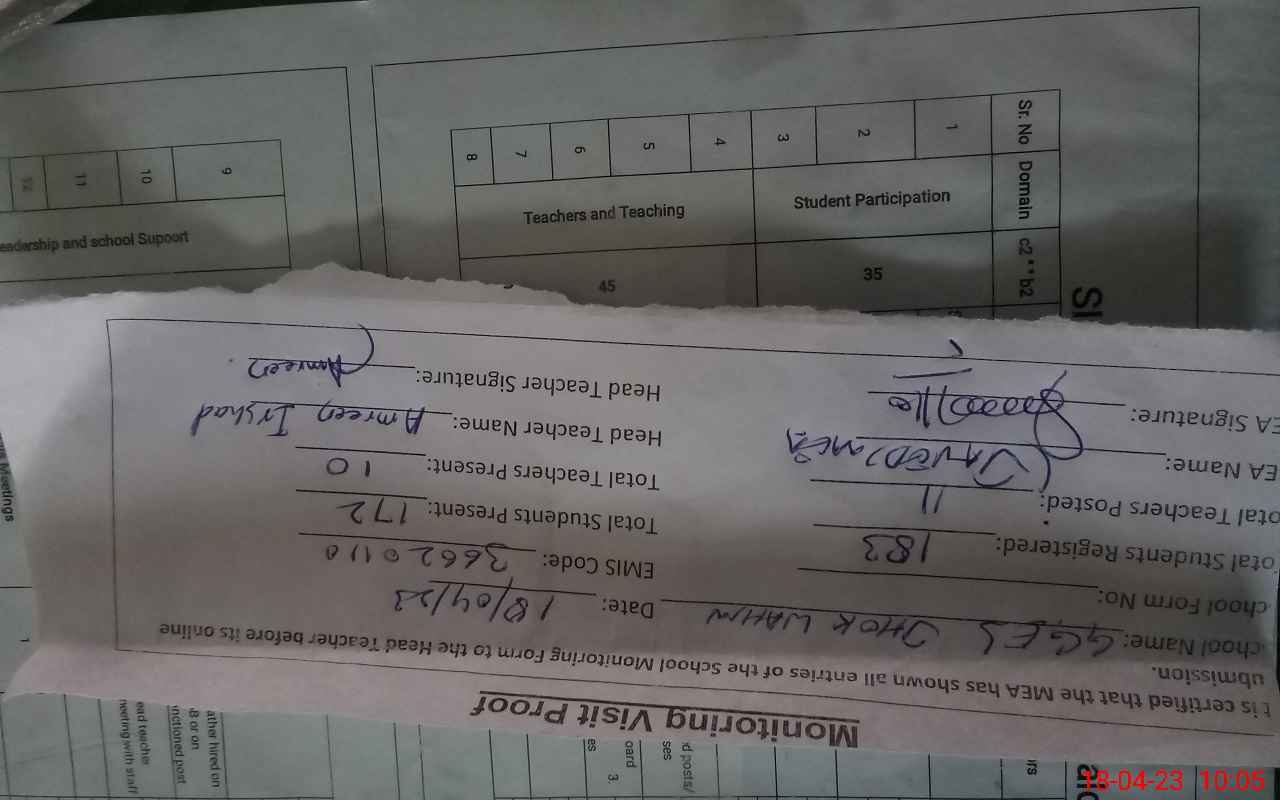 Monitoring Visit Proof
t is certified that the MEA has shown all entries of the School Monitoring Form to the Head Teacher before its online
ubmission.
chool Name: GGES JHOK WAHIN Date: 18/04/23
chool Form No: EMIS Code: 36620110
otal Students Registered: 183 Total Students Present: 172
otal Teachers Posted: 11 Total Teachers Present: 10
EA Name: Head Teacher Name: Amreen Irshad
EA Signature: Head Teacher Signature: Amreen
Sr. No 1 2 3 4 5 6 7 8
Domain Student Participation Teachers and Teaching
c2**b2 35 45
9 10 11 12
eadership and school Supoort
ather hired on
-B or on
nctioned post
ead teache
neeting with staff
Meetings
1
d posts/
ses
oard 3.
es
18-04-23 10:05